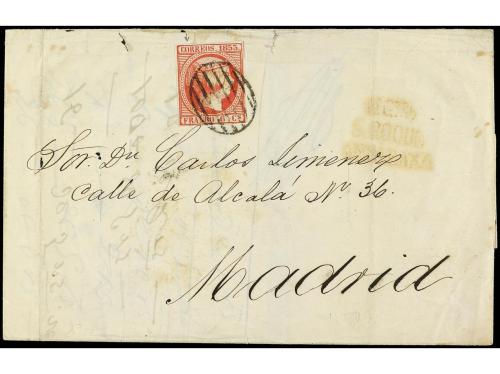 CORREOS 1853
FRANCO 6 Cs
S. ROQUE
Sor. Dn Carlos Jimenez
Calle de Alcalá No. 36.
Madrid